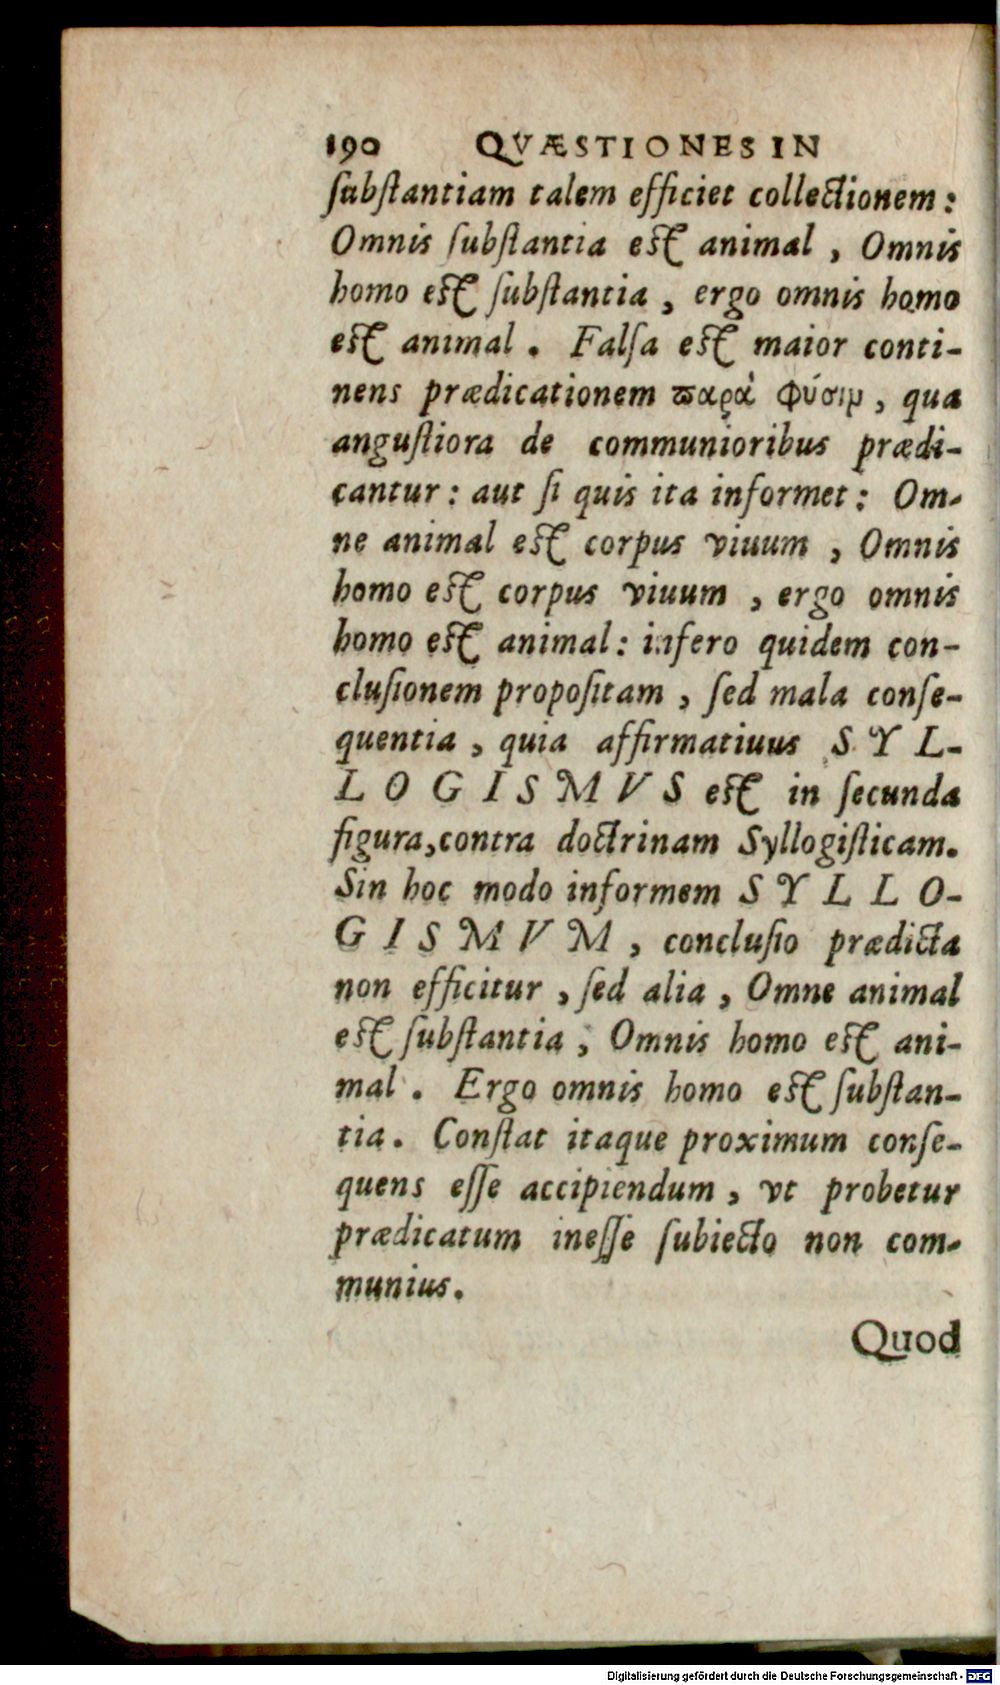 190 QVÆSTIONES IN
ſubſtantiam talem efficiet collectionem:
Omnis ſubſtantia eſt animal, Omnis
homo eſt ſubſtantia, ergo omnis homo
eſt animal. Falſa eſt maior conti-
nens prædicationem ϖαρὰ φύσιμ, qua
anguſtiora de communioribus prædi-
cantur: aut ſi quis ita informet: Om-
ne animal eſt corpus viuum, Omnis
homo eſt corpus viuum, ergo omnis
homo eſt animal: infero quidem con-
cluſionem propoſitam, ſed mala conſe-
quentia, quia affirmatiuus SYL-
LOGISMVS eſt in ſecunda
figura, contra doctrinam Syllogiſticam.
Sin hoc modo informem SYLLO-
GISMVM, concluſio prædicta
non efficitur, ſed alia, Omne animal
eſt ſubſtantia, Omnis homo eſt ani-
mal. Ergo omnis homo eſt ſubſtan-
tia. Conſtat itaque proximum conſe-
quens eſſe accipiendum, vt probetur
prædicatum ineſſe ſubiecto non com-
munius.
Quod
Digitalisierung gefördert durch die Deutsche Forschungsgemeinschaft - DFG